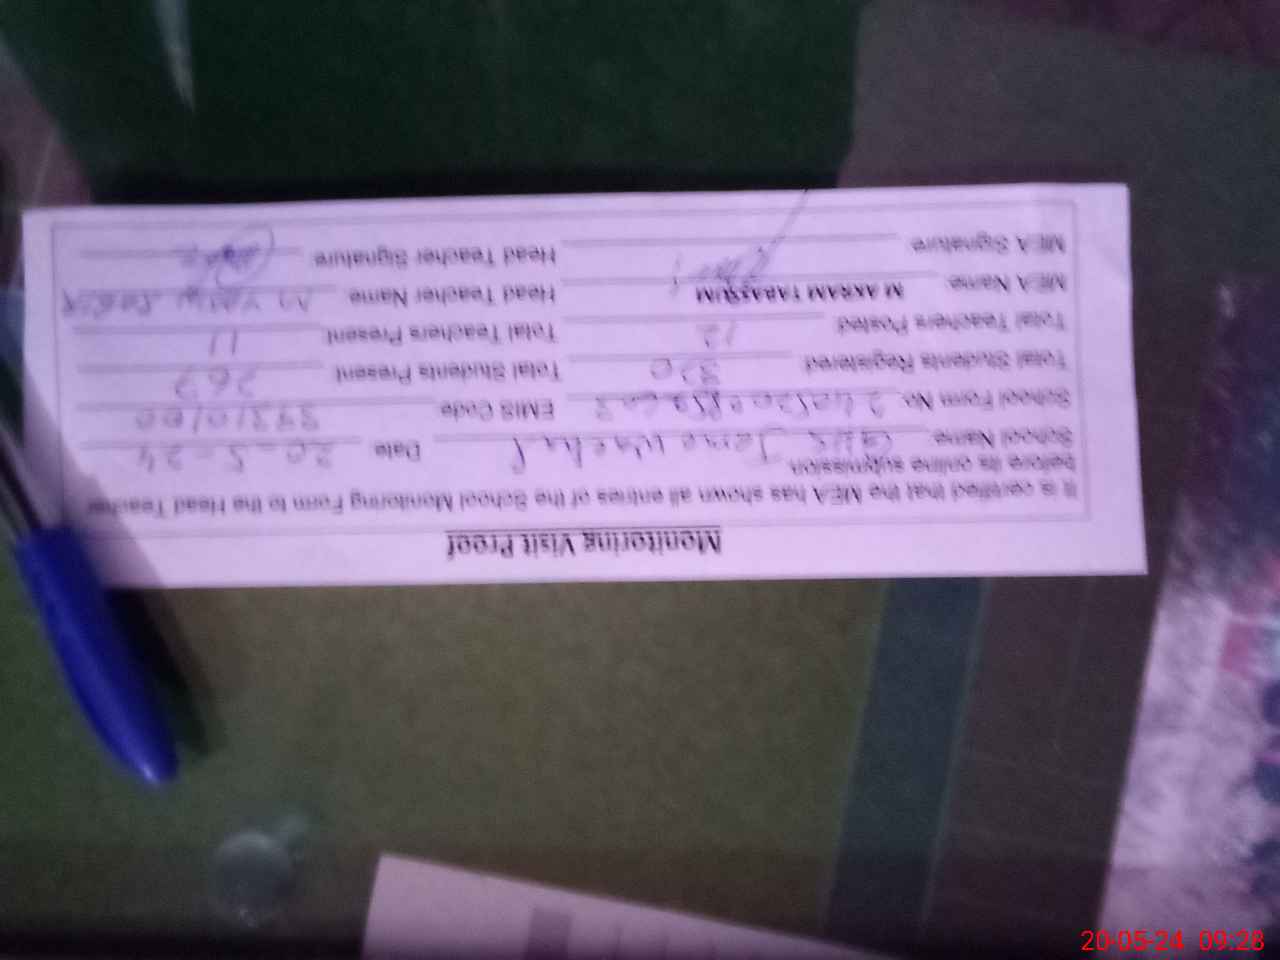 Monitoring Visit Proof
It is certified that the MEA has shown all entries of the School Monitoring Form to the Head Teacher
before its online submission.
School Name: Date 20-5-24
School Form No. EMIS Code
Total Students Registered 320 Total Students Present 267
Total Teachers Posted 12 Total Teachers Present 11
MEA Name M AKRAM TABASSUM Head Teacher Name
MEA Signature Head Teacher Signature
20-05-24 09:28